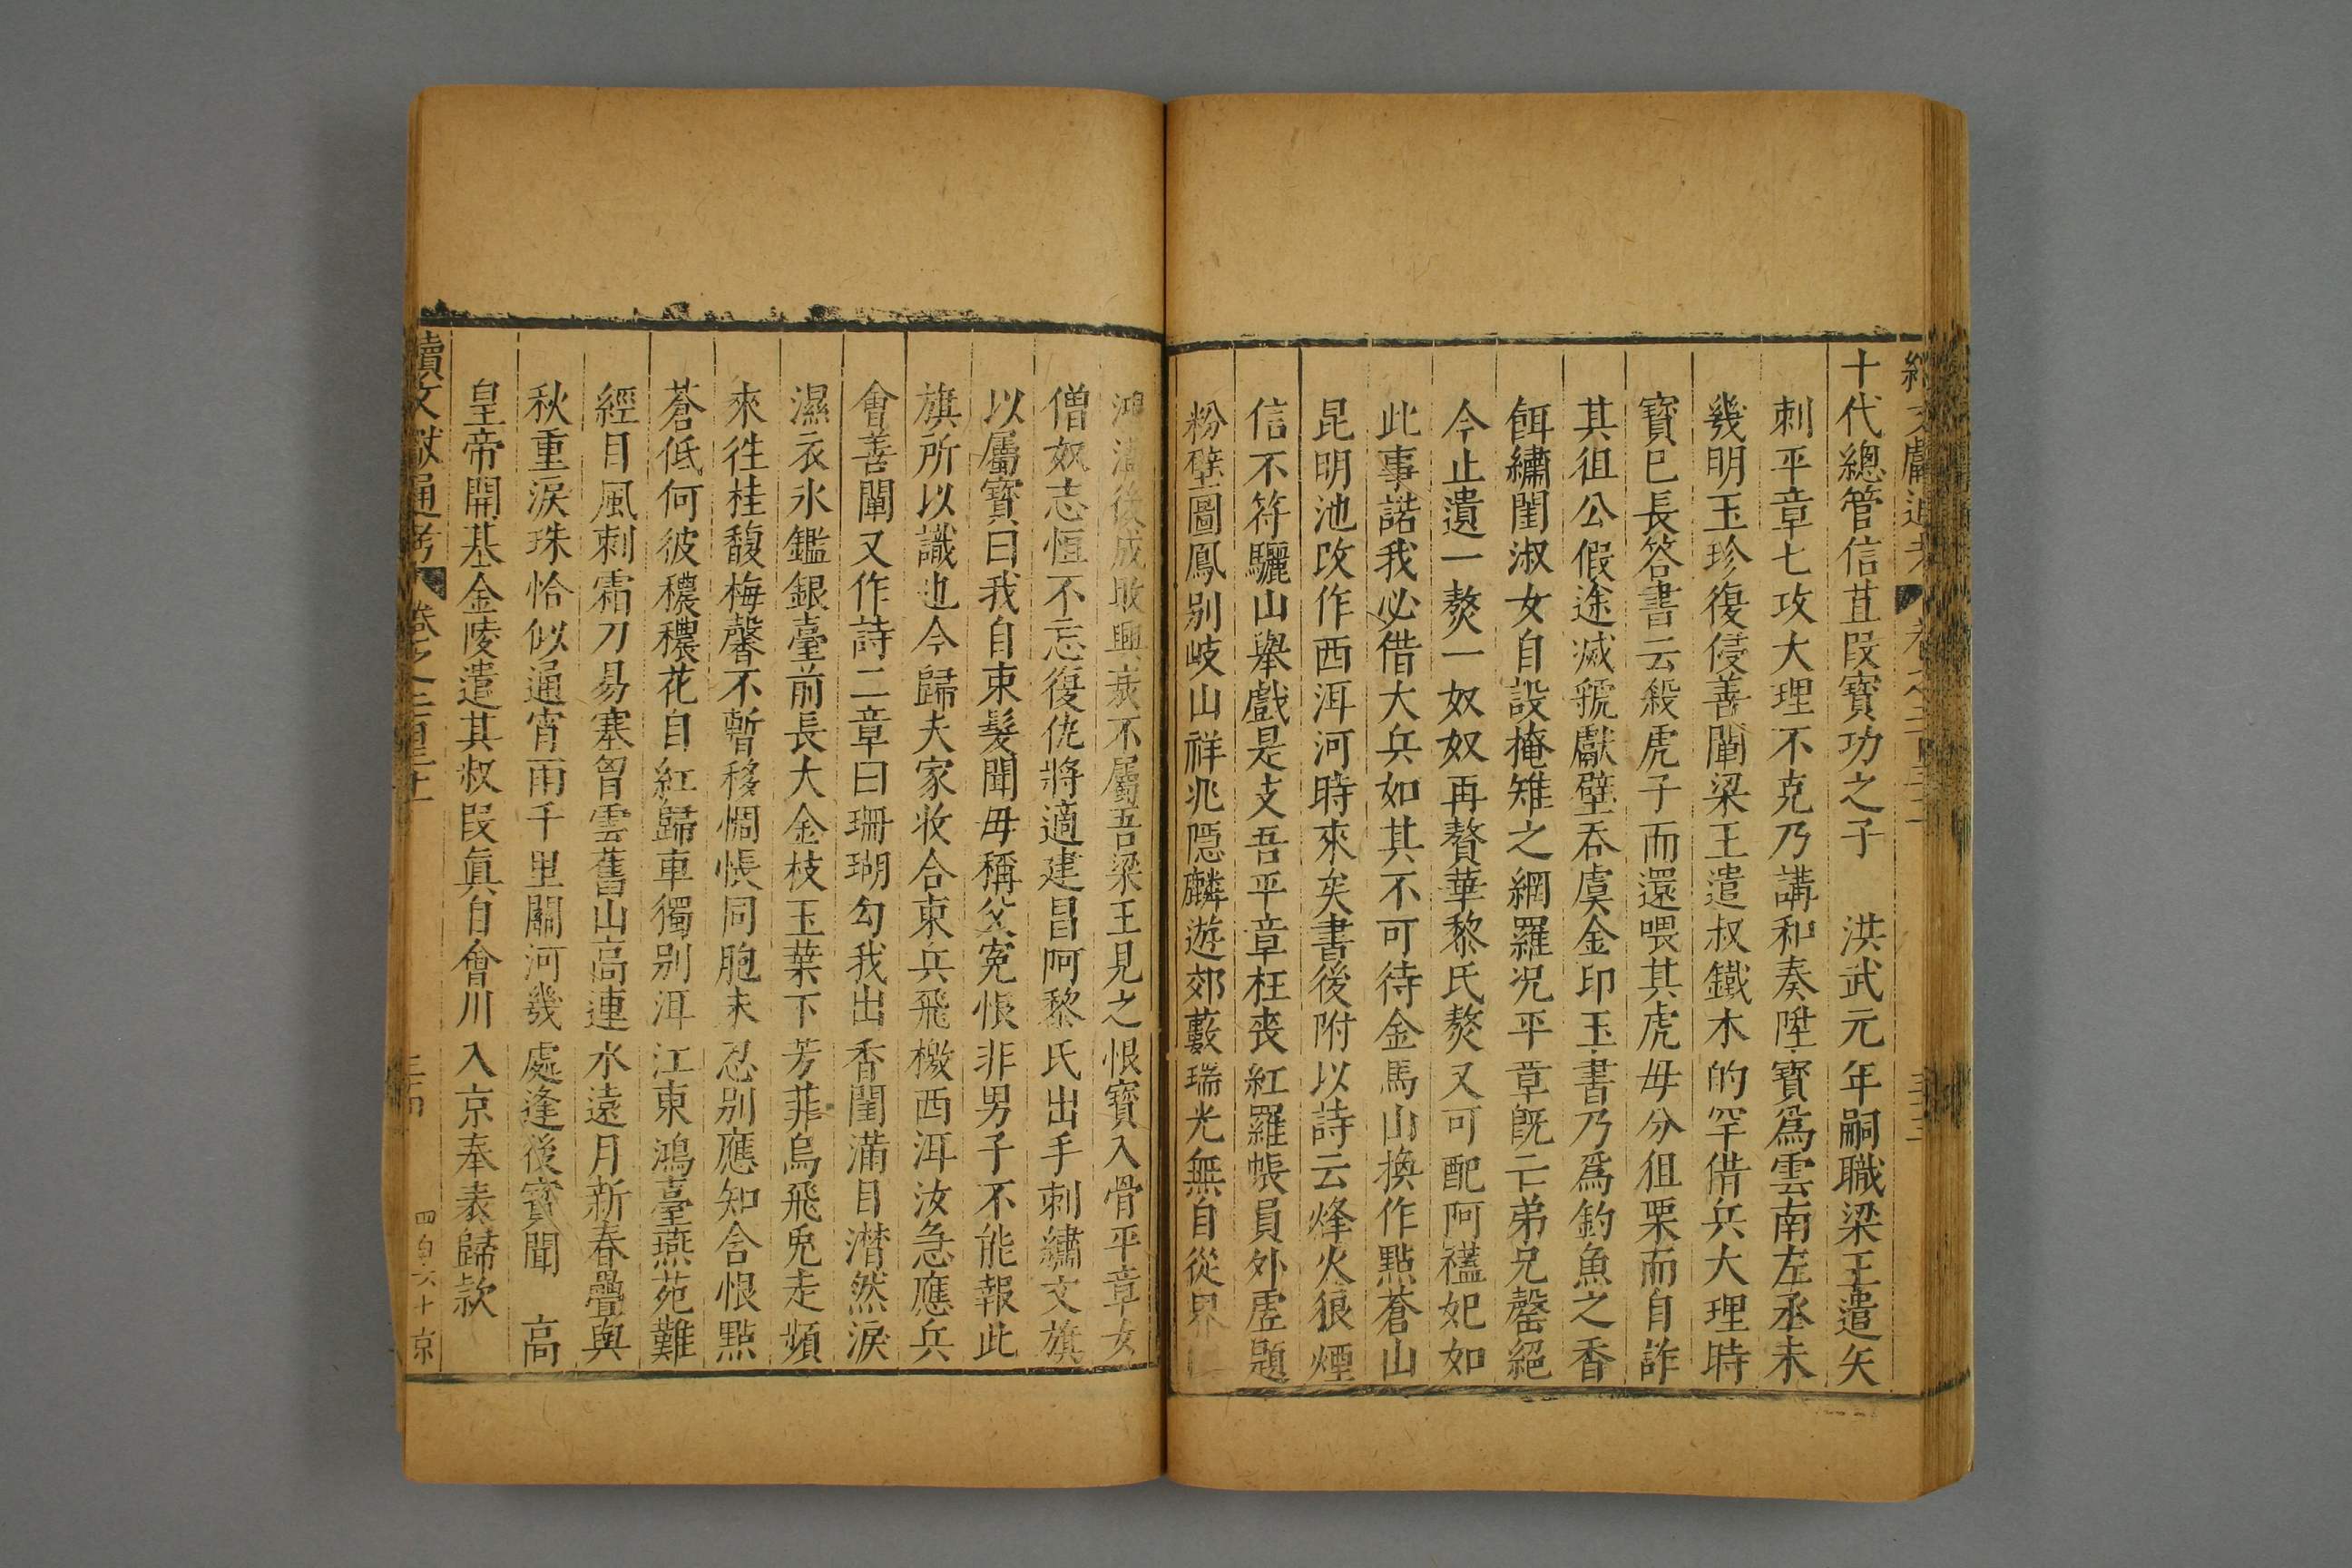 十代總管信苴叚寶功之子 洪武元年嗣職梁王遣矢
刺平章七攻大理不克乃講和奏陞寶爲雲南左丞未
幾明玉珍復侵善闡梁王遣叔鐵木的罕借兵大理時
寶巳長答書云殺虎子而還喂其虎毋分狙栗而自詐
其徂公假途滅虢獻璧吞虞金印玉書乃爲釣魚之香
餌繡閨淑女自設掩雉之網羅况平章旣亡弟兄罄絕
今止遺一獒一奴奴再贅華黎氏獒又可配阿𧝊妃如
此事諾我必借大兵如其不可待金馬山換作點蒼山
昆明池改作西洱河時來矣書後附以詩云烽火狼煙
信不符驪山舉戲是支吾平章枉喪紅羅帳員外虛題
粉壁圖鳳别岐山祥兆隱麟遊郊藪瑞光無自從界
鴻溝後成敗興衰不屬吾梁王見之恨寶入骨平章女
僧奴志恒不忘復仇將適建昌阿黎氏出手刺繡文旗
以屬寶曰我自束髮聞母稱父寃恨非男子不能報此
旗所以識也今歸夫家收合東兵飛檄西洱汝急應兵
會善闡又作詩二章曰珊瑚勾我出香閨滿目潸然淚
濕衣氷鑑銀臺前長大金枝玉葉下芳菲烏飛兎走頻
來徃桂馥梅馨不暫移惆悵同胞未忍别應知含恨點
蒼低何彼穠穠花自紅歸車獨别洱江東鴻臺燕苑難
經目風刺霜刀易塞智雲舊山高連水遠月新春疊與
秋重淚珠恰似通宵雨千里關河幾處逢後寶聞 高
皇帝開基金陵遣其叔叚眞自會川入京奉表歸欵
續文獻通考 卷之二百三十 三十四 四百六十 京